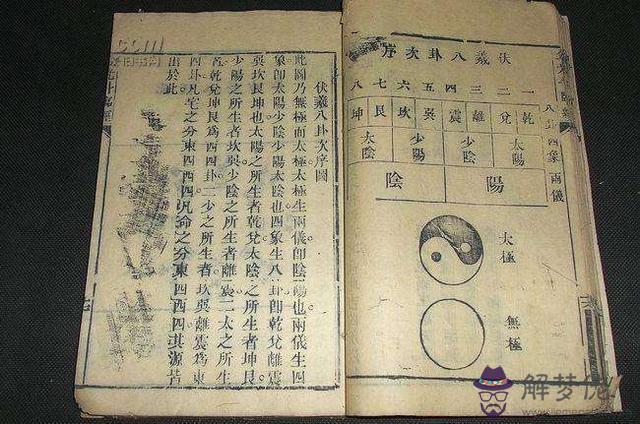 伏羲八卦次序
一二三四五六七八
乾兌離震巽坎艮坤
太陽 少陰 少陽 太陰
陽 陰
四象 兩儀
太極
無極
伏羲八卦次序圖
此圖乃無極而太極太極生兩儀即陰陽也兩儀生四
象即太陽少陰少陽太陰也四象生八卦即乾兌離震
巽坎艮坤也太陽之所生者乾兌太陰之所生者坤艮
少陽之所生者坎巽少陰之所生者離震二太之所生
者乾兌坤艮爲西四卦二少之所生者坎巽離震爲東
四卦凡宅之分東四西四凡命之分東四西四其源皆
出於此
.com
解梦佬